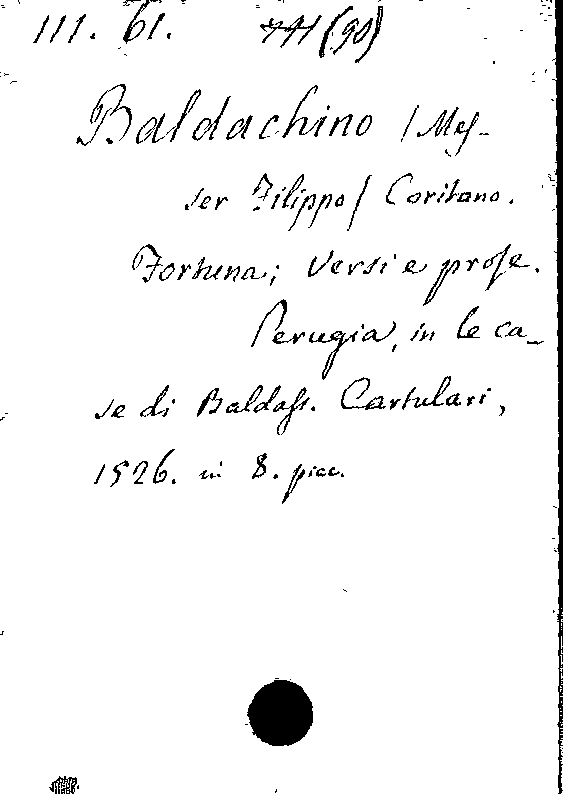 111. 61. 741 (90)
Baldachino /Mes-
ser Filippo/ Coritano.
Fortuna; Versi e prose.
Perugia, in le ca-
se di Baldass. Cartulari,
1526. in 8. picc.